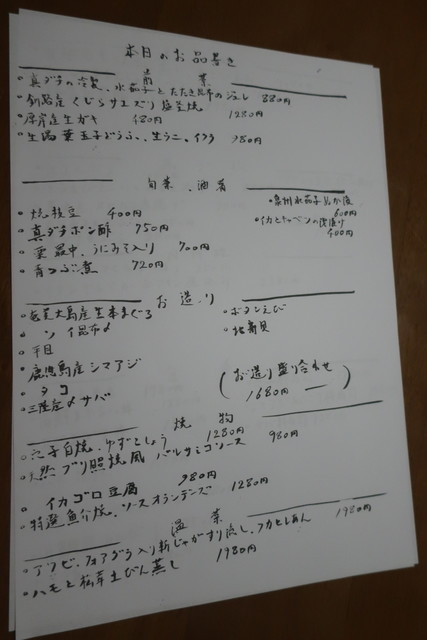 本日のお品書き
前菜
・真ダラの冷製、水茄子とたたき昆布のジュレ 880円
・釧路産くじらサエズリ塩釜焼 1280円
・厚岸産生ガキ 480円
・生湯葉玉子どうふ、生うに、イクラ 980円
旬菜、酒肴
・泉州水茄子ぬか漬 600円
・イカとキャベツの浅漬け 400円
・焼枝豆 400円
・真ダラポン酢 750円
・栗最中、うにみそ入り 700円
・青つぶ煮 720円
お造り
・奄美大島産生本まぐろ
・ソイ昆布〆
・平目
・鹿児島産シマアジ
・タコ
・三陸産〆サバ
・ボタンえび
・北寄貝
(お造り盛り合わせ 1680円ー)
焼物
・穴子白焼、ゆずこしょう 1280円
・天然ブリ照焼風 バルサミコソース 980円
・イカゴロ豆腐 980円
・特選魚介焼、ソースオランデーズ 1280円
温菜
・アワビ、フォアグラ入り新じゃがすり流し、フカヒレあん 1980円
・ハモと松茸土びん蒸し 1980円